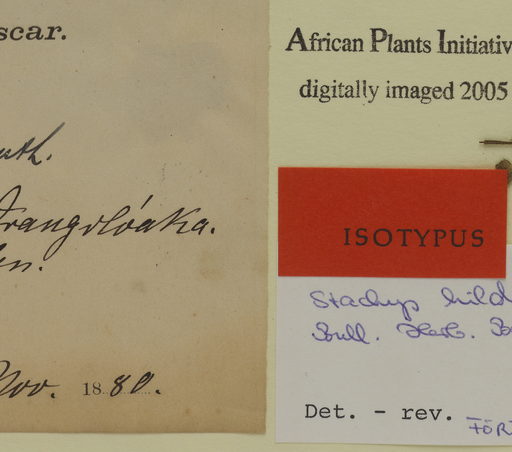 scar.
uth.
Irangolóaka.
en.
Nov. 1880.
African Plants Initiativ
digitally imaged 2005
ISOTYPUS
Stachys hild
Bull. Herb. Bo
Det. - rev. FÖR